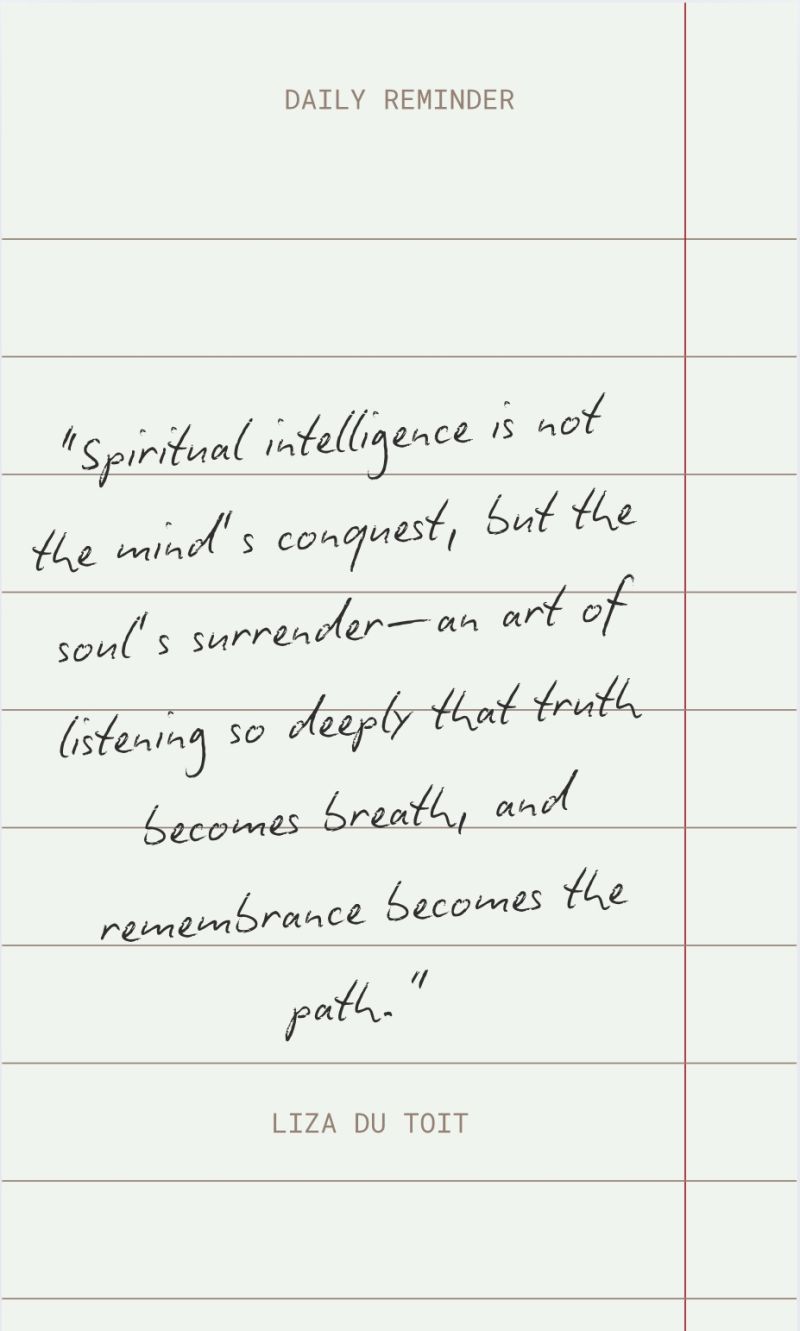 DAILY REMINDER
"Spiritual intelligence is not
the mind's conquest, but the
soul's surrender—an art of
listening so deeply that truth
becomes breath, and
remembrance becomes the
path."
LIZA DU TOIT